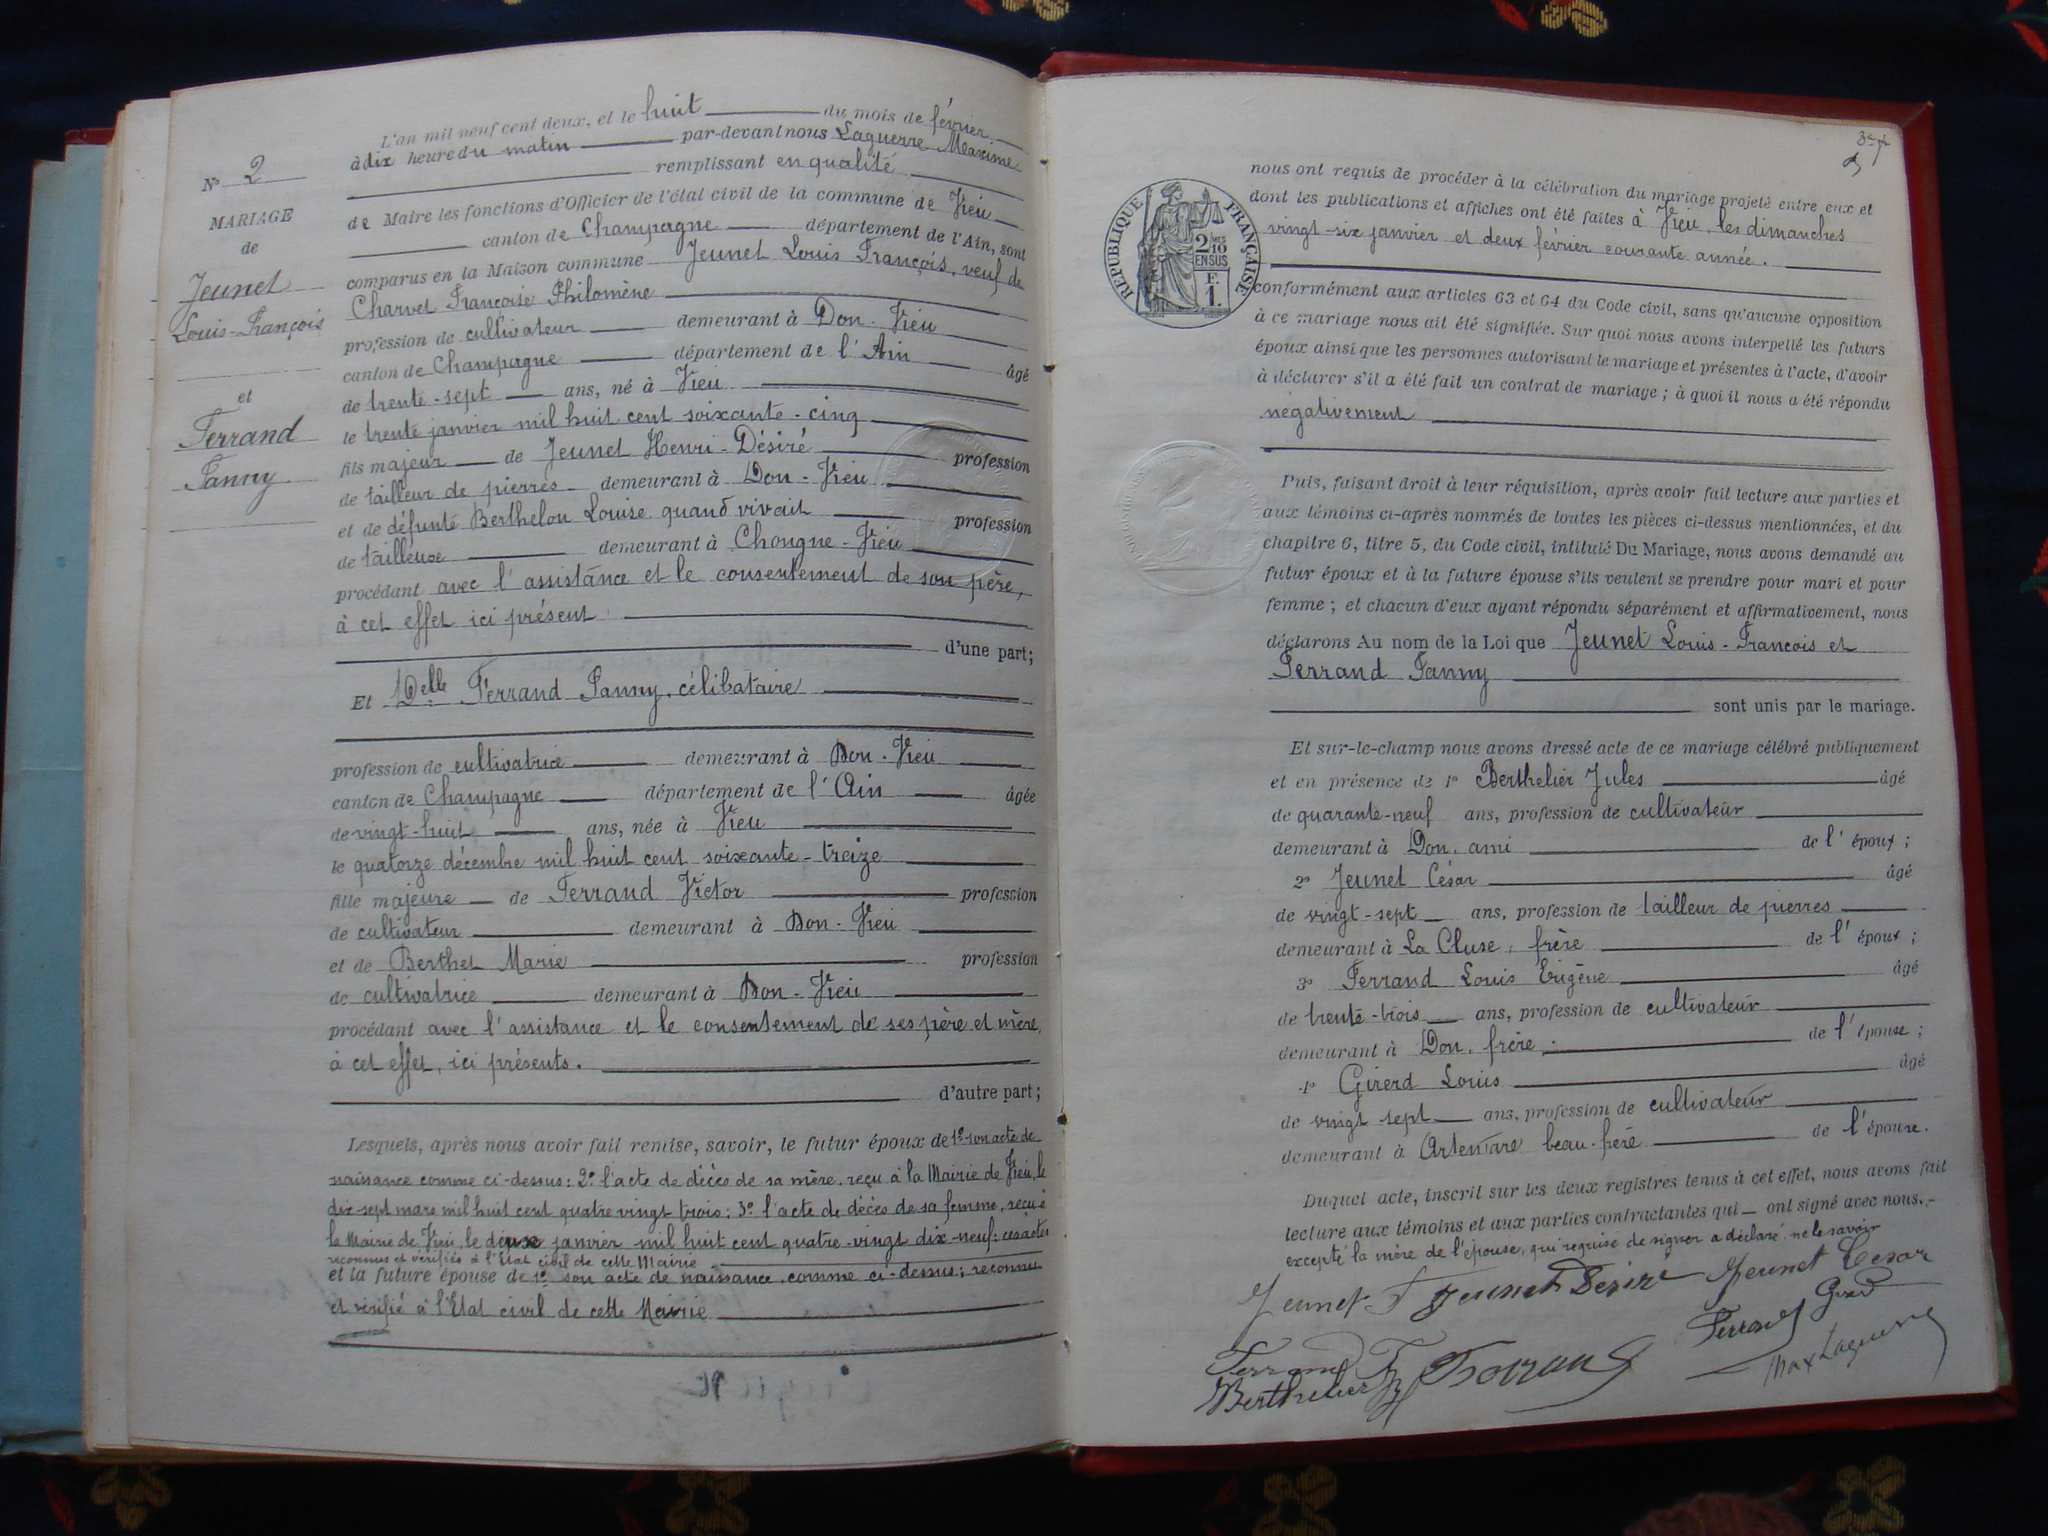 L'an mil neuf cent deux, et le huit du mois de février
à dix heure du matin par-devant nous Laguerre Maxime
remplissant en qualité
de Maire les fonctions d'Officier de l'état civil de la commune de Vieu
canton de Champagne département de l'Ain, sont
comparus en la Maison commune Jeunet Louis François, veuf de
Charvet Françoise Philomène
profession de cultivateur demeurant à Don-Vieu
canton de Champagne département de l'Ain âgé
de trente-sept ans, né à Vieu
le trente janvier mil huit cent soixante-cinq
fils majeur de Jeunet Henri-Désiré profession
de tailleur de pierres demeurant à Don-Vieu
et de défunte Berthelon Louise quand vivait profession
de tailleuse demeurant à Chongne-Vieu
procédant avec l'assistance et le consentement de son père,
à cet effet ici présent
d'une part;
Et Delle Ferrand Fanny, célibataire
profession de cultivatrice demeurant à Don-Vieu
canton de Champagne département de l'Ain âgée
de vingt-huit ans, née à Vieu
le quatorze décembre mil huit cent soixante-treize
fille majeure de Ferrand Victor profession
de cultivateur demeurant à Don-Vieu
et de Berthet Marie profession
de cultivatrice demeurant à Don-Vieu
procédant avec l'assistance et le consentement de ses père et mère,
à cet effet, ici présents.
d'autre part;
Lesquels, après nous avoir fait remise, savoir, le futur époux de 1º son acte de
naissance comme ci-dessus: 2º l'acte de décès de sa mère, reçu à la Mairie de Vieu, le
dix-sept mars mil huit cent quatre vingt trois: 3º l'acte de décès de sa femme, reçu à
la Mairie de Vieu, le janvier mil huit cent quatre-vingt dix-neuf: ces actes
reconnus et vérifiés à l'Etat civil de cette Mairie
et la future épouse de 1º son acte de naissance, comme ci-dessus; reconnu
et vérifié à l'Etat civil de cette Mairie
Nº 2
MARIAGE
de
Jeunet
Louis-François
et
Ferrand
Fanny
RÉPUBLIQUE FRANÇAISE
2/10
EN SUS
F.
1.
nous ont requis de procéder à la célébration du mariage projeté entre eux et
dont les publications et affiches ont été faites à Vieu, les dimanches
vingt-six janvier et deux février courante année.
conformément aux articles 63 et 64 du Code civil, sans qu'aucune opposition
à ce mariage nous ait été signifiée. Sur quoi nous avons interpellé les futurs
époux ainsi que les personnes autorisant le mariage et présentes à l'acte, d'avoir
à déclarer s'il a été fait un contrat de mariage; à quoi il nous a été répondu
négativement
Puis, faisant droit à leur réquisition, après avoir fait lecture aux parties et
aux témoins ci-après nommés de toutes les pièces ci-dessus mentionnées, et du
chapitre 6, titre 5, du Code civil, intitulé Du Mariage, nous avons demandé au
futur époux et à la future épouse s'ils veulent se prendre pour mari et pour
femme; et chacun d'eux ayant répondu séparément et affirmativement, nous
déclarons Au nom de la Loi que Jeunet Louis-François et
Ferrand Fanny
sont unis par le mariage.
Et sur-le-champ nous avons dressé acte de ce mariage célébré publiquement
et en présence de 1º Berthelier Jules âgé
de quarante-neuf ans, profession de cultivateur
demeurant à Don, ami de l'époux;
2º Jeunet César âgé
de vingt-sept ans, profession de tailleur de pierres
demeurant à La Cluse, frère de l'époux;
3º Ferrand Louis Eugène âgé
de trente-trois ans, profession de cultivateur
demeurant à Don, frère de l'épouse;
4º Girerd Louis âgé
de vingt sept ans, profession de cultivateur
demeurant à Artemare beau-frère de l'épouse.
Duquel acte, inscrit sur les deux registres tenus à cet effet, nous avons fait
lecture aux témoins et aux parties contractantes qui ont signé avec nous.
excepté la mère de l'épouse, qui requise de signer a déclaré ne le savoir
Jeunet F Jeunet Désiré Jeunet César
Ferrand F Ferrand Girerd
Berthelier Ferrand Max Laguerre